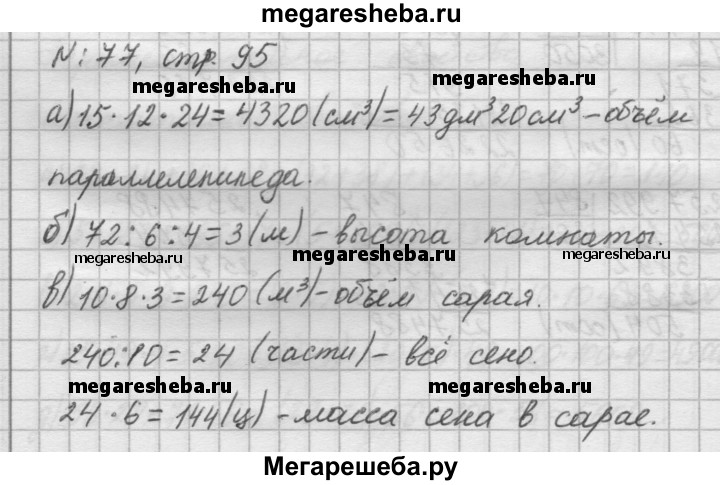 megaresheba.ru
N: 77, стр. 95
megaresheba.ru megaresheba.ru
а) 15·12·24=4320(см³)=43дм³20см³-объём
параллелепипеда.
б) 72:6:4=3(м)-высота комнаты.
megaresheba.ru megaresheba.ru megaresheba.ru
в) 10·8·3=240(м³)-объём сарая.
240:10=24 (части)-всё сено.
megaresheba.ru megaresheba.ru
24·6=144(ц)-масса сена в сарае.
Мегарешеба.ру